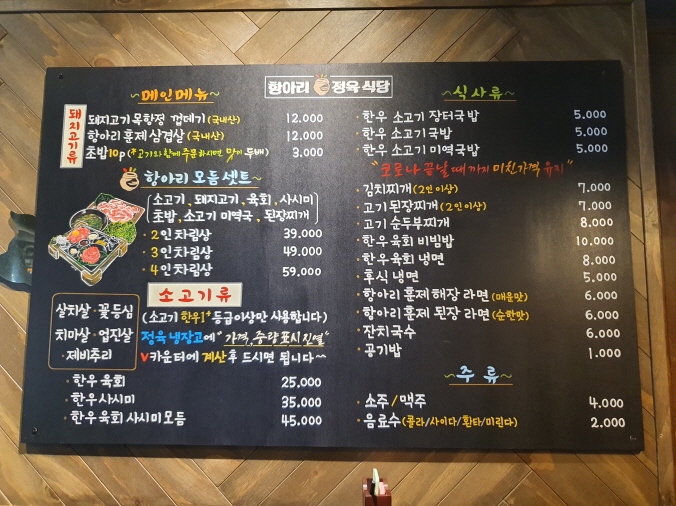 항아리 정육식당
~메인메뉴~
돼지고기류
돼지고기 목항정 껍데기(국내산) 12.000
항아리 훈제 삼겹살(국내산) 12.000
초밥10p(*고기와 함께 주문하시면 맛이 두배) 3.000
항아리 모듬셋트~
소고기, 돼지고기, 육회, 사시미
초밥, 소고기 미역국, 된장찌개
· 2인차림상 39.000
· 3인차림상 49.000
· 4인차림상 59.000
소고기류
살치살 · 꽃등심
치마살 · 업진살
· 제비추리
(소고기 한우1+등급이상만 사용합니다)
정육 냉장고에 "가격, 중량 표시 진열"
V카운터에 계산 후 드시면 됩니다~~
· 한우 육회 25.000
· 한우사시미 35.000
· 한우육회 사시미모듬 45.000
~식사류~
· 한우 소고기 장터국밥 5.000
· 한우 소고기 국밥 5.000
· 한우 소고기 미역국밥 5.000
"코로나 끝날 때까지 미친가격 유지"
· 김치찌개(2인이상) 7.000
· 고기 된장찌개(2인이상) 7.000
· 고기 순두부찌개 8.000
· 한우육회 비빔밥 10.000
· 한우육회 냉면 8.000
· 후식 냉면 5.000
· 항아리 훈제 해장 라면(매운맛) 6.000
· 항아리 훈제 된장 라면(순한맛) 6.000
· 잔치국수 6.000
· 공기밥 1.000
~주류~
· 소주/맥주 4.000
· 음료수(콜라/사이다/환타/미린다) 2.000